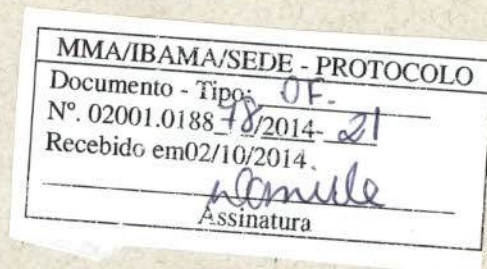 MMA/IBAMA/SEDE - PROTOCOLO
Documento - Tipo: OF.
Nº. 02001.018878/2014-21
Recebido em02/10/2014.
Danielle
Assinatura